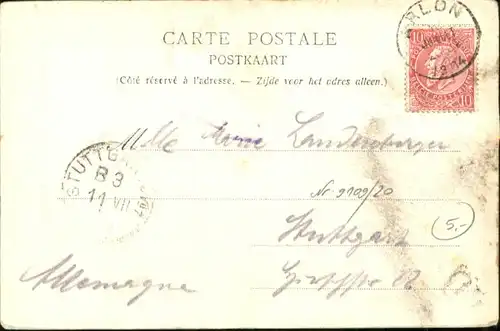 ARLON
10 10
CARTE POSTALE
POSTKAART
(Côté réservé à l'adresse. — Zijde voor het adres alleen.)
Mlle Marie Landenberger
STUTTG
B3
11 VII
Nr. 9109/20
Stuttgart
5.-
Allemagne